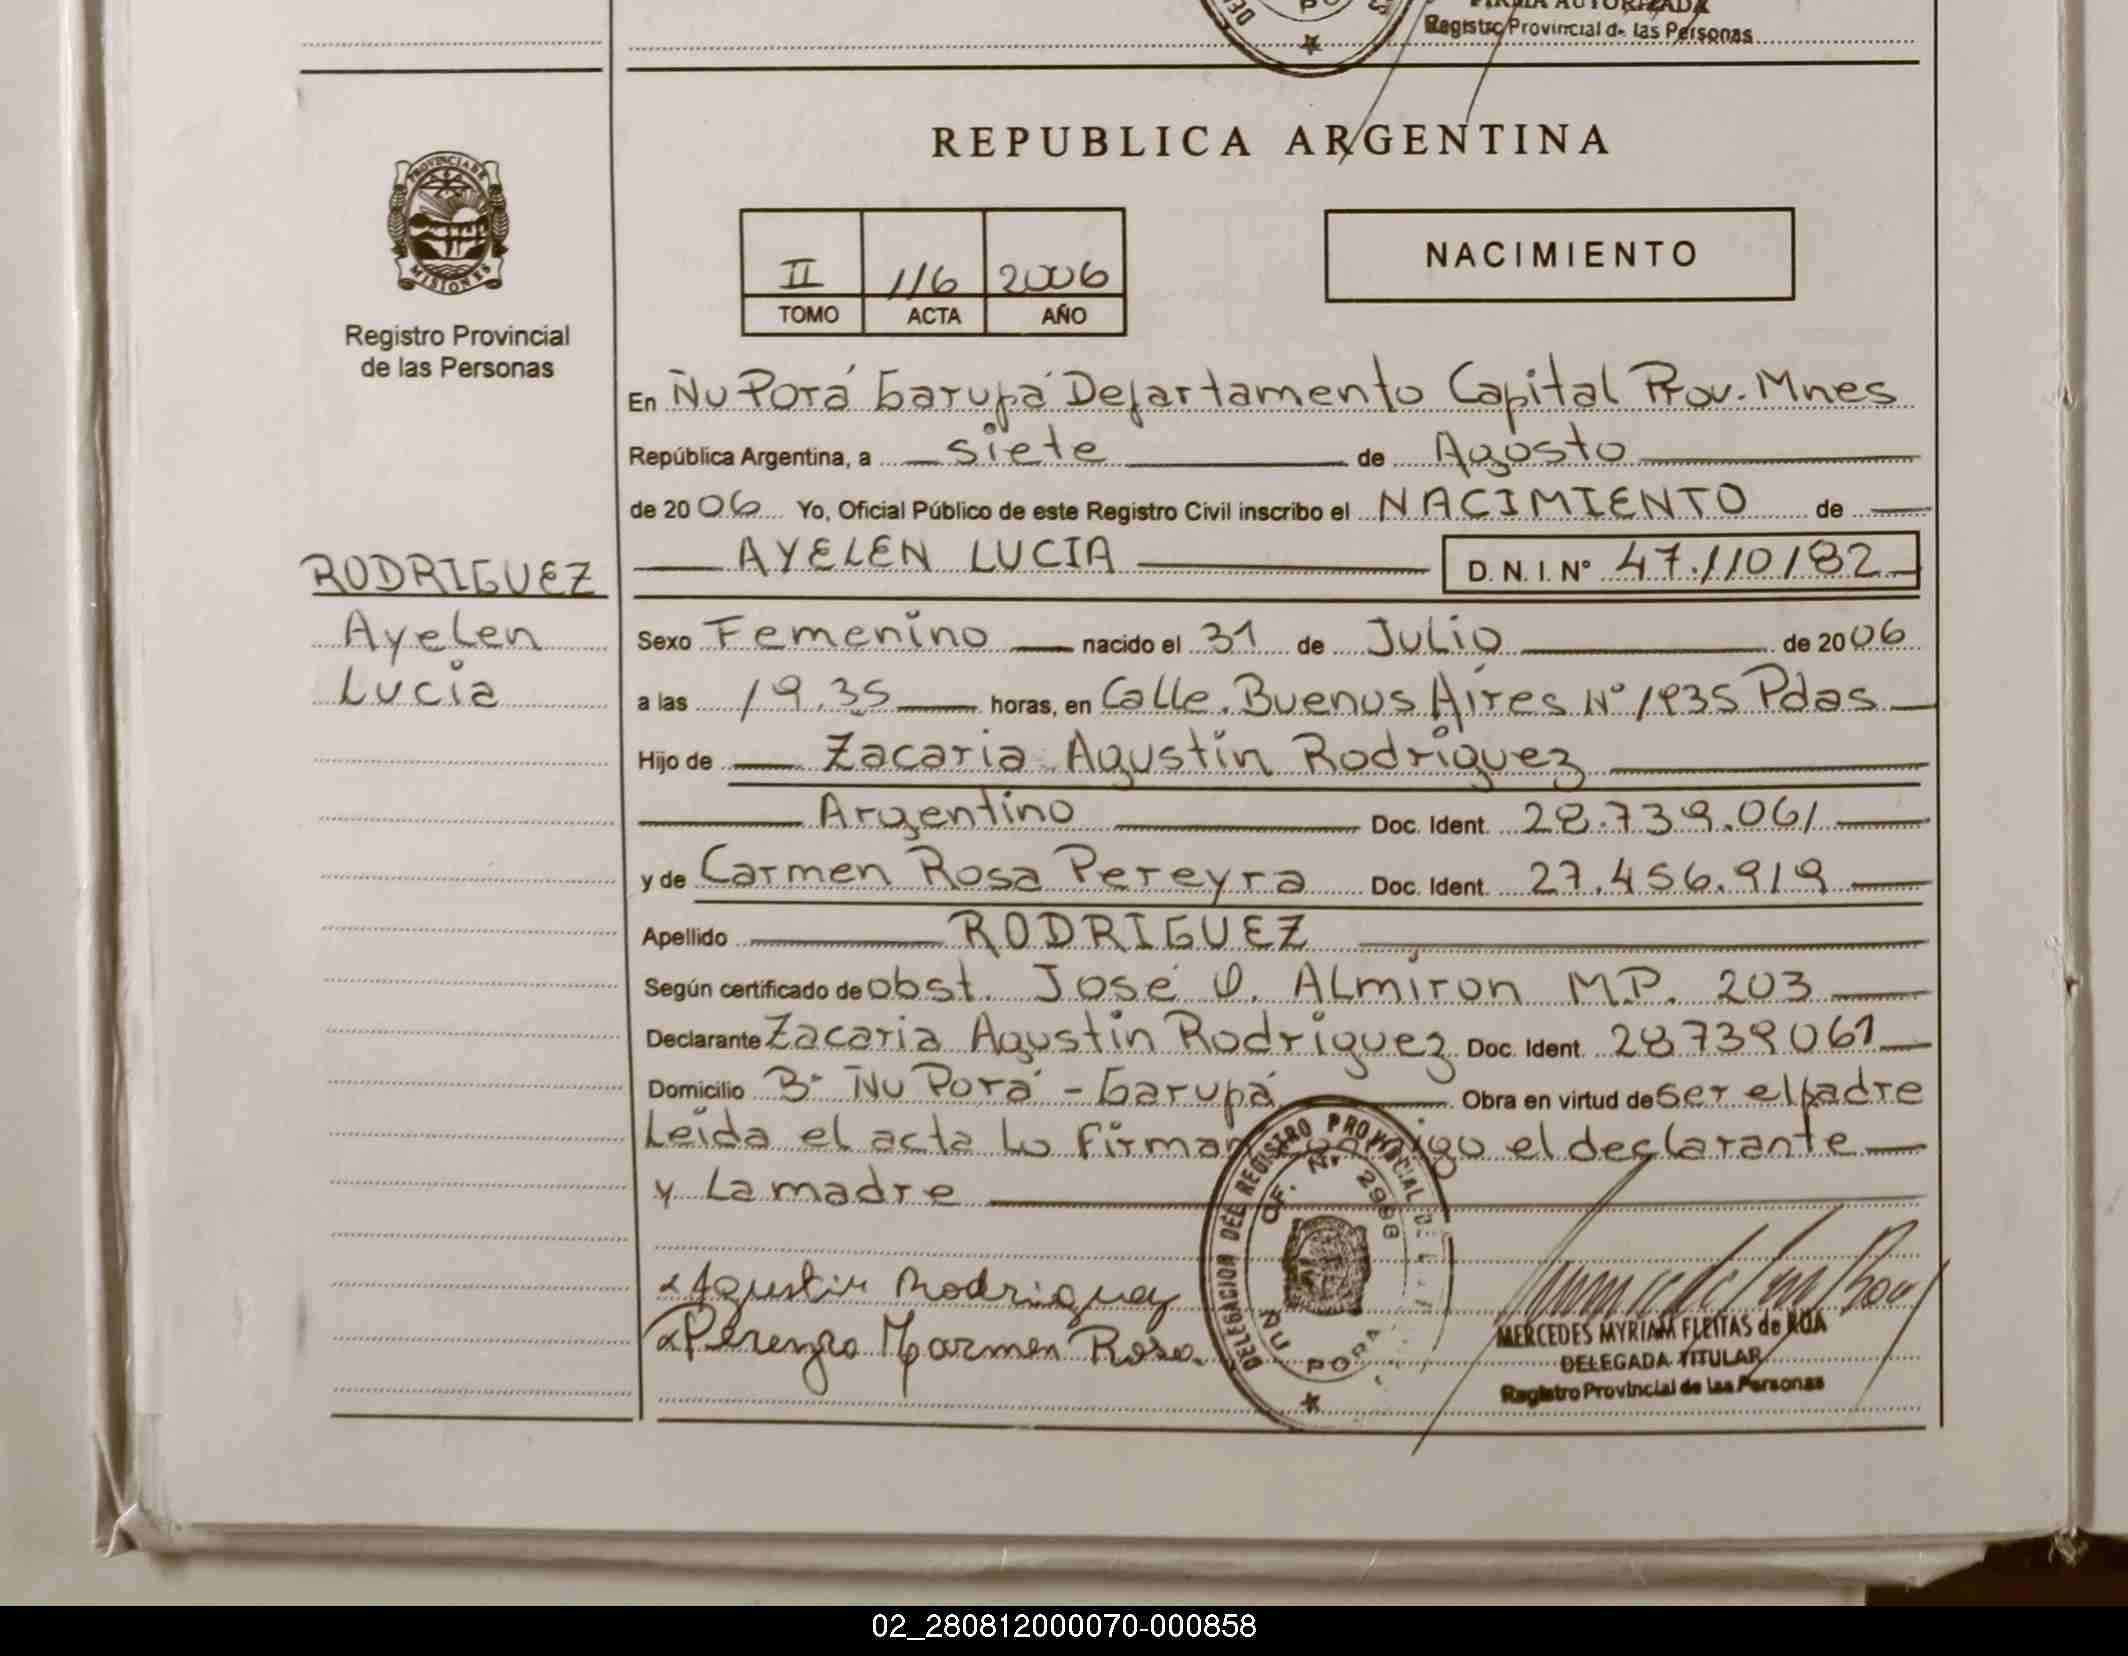 FIRMA AUTORIZADA
Registro Provincial de las Personas
REPUBLICA ARGENTINA
PROVINCIA DE
MISIONES
Registro Provincial
de las Personas
II 116 2006
TOMO ACTA AÑO
NACIMIENTO
En Ñu Porá Garupá Departamento Capital Prov. Mnes
República Argentina, a siete de Agosto
de 2006 Yo, Oficial Público de este Registro Civil inscribo el NACIMIENTO de
AYELEN LUCIA D. N. I. Nº 47.110182
RODRIGUEZ
Ayelen
Lucia
Sexo Femenino nacido el 31 de Julio de 2006
a las 19.35 horas, en Calle. Buenus Aires Nº 1935 Pdas
Hijo de Zacaria Agustin Rodriguez
Argentino Doc. Ident. 28.739.061
y de Carmen Rosa Pereyra Doc. Ident. 27.456.919
Apellido RODRIGUEZ
Según certificado de obst. José O. Almiron M.P. 203
Declarante Zacaria Agustin Rodriguez Doc. Ident. 28739061
Domicilio Bº Ñu Porá - Garupá Obra en virtud de ser el padre
Leida el acta lo Firman conmigo el declarante
y La madre
DELEGACION DEL REGISTRO PROVINCIAL DE
OF. Nº 2998
ÑU PORA
Agustin Rodriguez
Pereyra Carmen Rosa
MERCEDES MYRIAM FLEITAS de ROA
DELEGADA TITULAR
Registro Provincial de las Personas
02_280812000070-000858